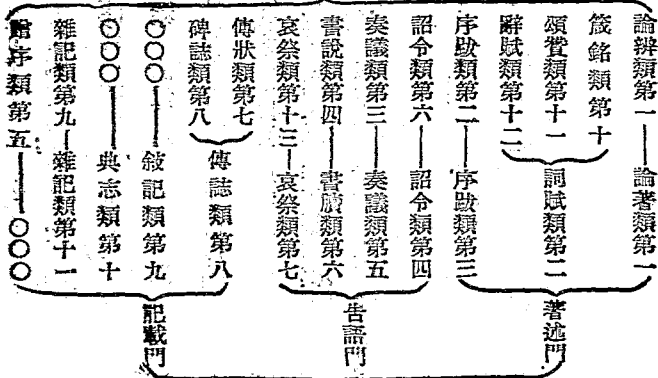 論辨類第一——論著類第一
箴銘類第十
頌贊類第十一
辭賦類第十二
詞賦類第二
序跋類第二——序跋類第三
著述門
詔令類第六——詔令類第四
奏議類第三——奏議類第五
書說類第四——書牘類第六
哀祭類第十三—哀祭類第七
告語門
傳狀類第七
碑誌類第八
傳誌類第八
〇〇〇——敍記類第九
〇〇〇——典志類第十
雜記類第九—雜記類第十一
贈序類第五——〇〇〇
記載門